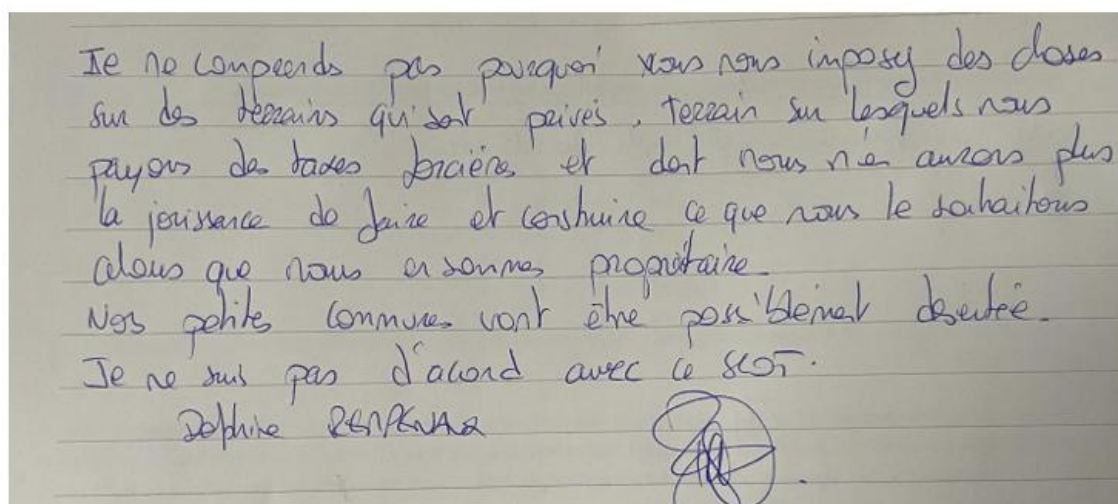 Je ne comprends pas pourquoi vous nous imposez des choses
sur des terrains qui sont privés, terrain sur lesquels nous
payons des taxes foncière, et dont nous n'en aurons plus
la jouissance de faire et construire ce que nous le souhaitons
alors que nous en sommes propriétaire.
Nos petites communes vont être possiblement desertée.
Je ne suis pas d'accord avec ce SCOT.
Delphine